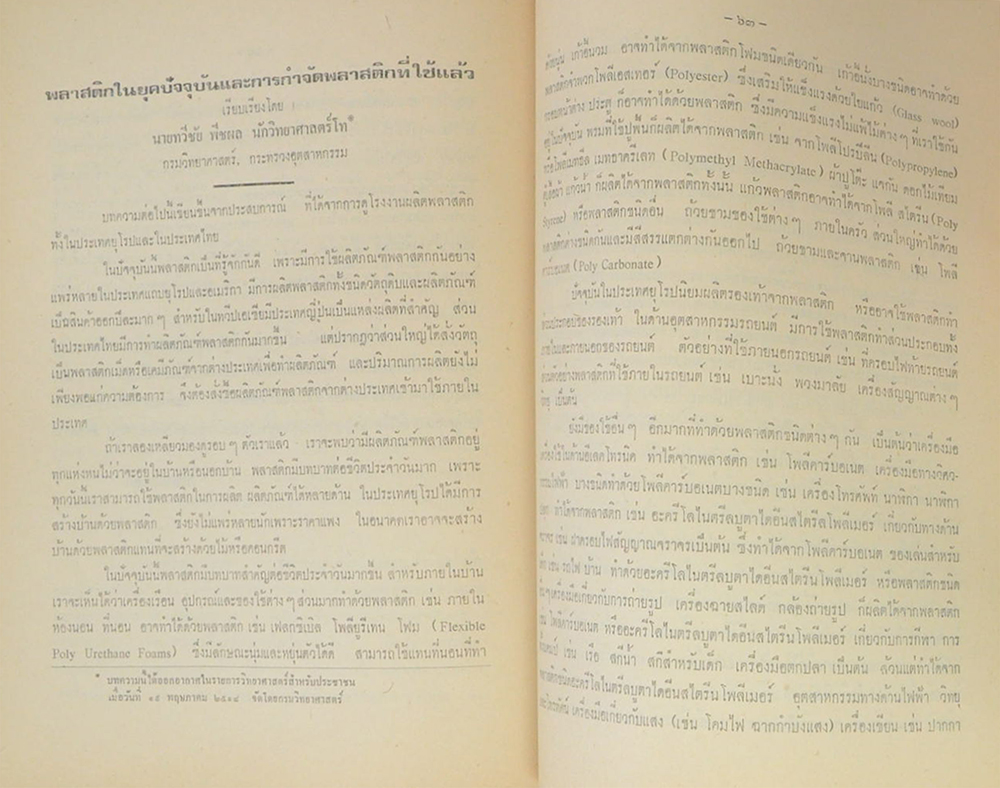 พลาสติกในยุคปัจจุบันและการกำจัดพลาสติกที่ใช้แล้ว
เรียบเรียงโดย
นายทวีชัย พืชผล นักวิทยาศาสตร์โท*
กรมวิทยาศาสตร์, กระทรวงอุตสาหกรรม
บทความต่อไปนี้เขียนขึ้นจากประสบการณ์ ที่ได้จากการดูโรงงานผลิตพลาสติก
ทั้งในประเทศยุโรปและในประเทศไทย
ในปัจจุบันนี้พลาสติกเป็นที่รู้จักกันดี เพราะมีการใช้ผลิตภัณฑ์พลาสติกกันอย่าง
แพร่หลายในประเทศแถบยุโรปและอเมริกา มีการผลิตพลาสติกทั้งชนิดวัตถุดิบและผลิตภัณฑ์
เป็นสินค้าออกปีละมาก ๆ สำหรับในทวีปเอเซียมีประเทศญี่ปุ่นเป็นแหล่งผลิตที่สำคัญ ส่วน
ในประเทศไทยมีการทำผลิตภัณฑ์พลาสติกกันมากขึ้น แต่ปรากฏว่าส่วนใหญ่ได้สั่งวัตถุ
เป็นพลาสติกเม็ดหรือเคมีภัณฑ์จากต่างประเทศเพื่อทำผลิตภัณฑ์ และปริมาณการผลิตยังไม่
เพียงพอแก่ความต้องการ จึงต้องสั่งซื้อผลิตภัณฑ์พลาสติกจากต่างประเทศเข้ามาใช้ภายใน
ประเทศ
ถ้าเราลองเหลียวมองดูรอบ ๆ ตัวเราแล้ว เราจะพบว่ามีผลิตภัณฑ์พลาสติกอยู่
ทุกแห่งหนไม่ว่าจะอยู่ในบ้านหรือนอกบ้าน พลาสติกมีบทบาทต่อชีวิตประจำวันมาก เพราะ
ทุกวันนี้เราสามารถใช้พลาสติกในการผลิต ผลิตภัณฑ์ได้หลายด้าน ในประเทศยุโรปได้มีการ
สร้างบ้านด้วยพลาสติก ซึ่งยังไม่แพร่หลายนักเพราะราคาแพง ในอนาคตเราอาจจะสร้าง
บ้านด้วยพลาสติกแทนที่จะสร้างด้วยไม้หรือคอนกรีต
ในปัจจุบันนี้พลาสติกมีบทบาทสำคัญต่อชีวิตประจำวันมากขึ้น สำหรับภายในบ้าน
เราจะเห็นได้ว่าเครื่องเรือน อุปกรณ์และของใช้ต่าง ๆ ส่วนมากทำด้วยพลาสติก เช่น ภายใน
ห้องนอน ที่นอน อาจทำได้ด้วยพลาสติก เช่น เฟลกซิเบิล โพลียูรีเทน โฟม (Flexible
Poly Urethane Foams) ซึ่งมีลักษณะนุ่มและหยุ่นตัวได้ดี สามารถใช้แทนที่นอนที่ทำ
* บทความนี้ได้ออกอากาศในรายการวิทยาศาสตร์สำหรับประชาชน
เมื่อวันที่ ๑๙ พฤษภาคม ๒๕๑๔ จัดโดยกรมวิทยาศาสตร์
– ๖๓ –
เก้าอี้นวม อาจทำได้จากพลาสติกโฟมชนิดเดียวกัน เก้าอี้นั่งบางชนิดอาจทำด้วย
พลาสติกจำพวกโพลีเอสเทอร์ (Polyester) ซึ่งเสริมให้แข็งแรงด้วยใยแก้ว (Glass wool)
หน้าต่าง ประตู ก็อาจทำได้ด้วยพลาสติก ซึ่งมีความแข็งแรงไม่แพ้ไม้ต่าง ๆ ที่เราใช้กัน
ปัจจุบัน พรมที่ใช้ปูพื้นก็ผลิตได้จากพลาสติก เช่น จากโพลีโปรปีลีน (Polypropylene)
เมทธาครีเลท (Polymethyl Methacrylate) ผ้าปูโต๊ะ แจกัน ดอกไม้เทียม
แก้วน้ำ ก็ผลิตได้จากพลาสติกทั้งนั้น แก้วพลาสติกอาจทำได้จากโพลี สไตรีน (Poly
Styrene) หรือพลาสติกชนิดอื่น ถ้วยชามของใช้ต่าง ๆ ภายในครัว ส่วนใหญ่ทำได้ด้วย
พลาสติกต่างชนิดกันและมีสีสรรแตกต่างกันออกไป ถ้วยชามและจานพลาสติก เช่น โพลี
คาร์บอเนต (Poly Carbonate)
ปัจจุบันในประเทศยุโรปนิยมผลิตรองเท้าจากพลาสติก หรืออาจใช้พลาสติกทำ
ส่วนประกอบของรองเท้า ในด้านอุตสาหกรรมรถยนต์ มีการใช้พลาสติกทำส่วนประกอบทั้ง
ภายในและภายนอกของรถยนต์ ตัวอย่างที่ใช้ภายนอกรถยนต์ เช่น ที่ครอบไฟท้ายรถยนต์
ตัวอย่างพลาสติกที่ใช้ภายในรถยนต์ เช่น เบาะนั่ง พวงมาลัย เครื่องสัญญาณต่าง ๆ
เป็นต้น
ยังมีของใช้อื่น ๆ อีกมากที่ทำด้วยพลาสติกชนิดต่าง ๆ กัน เป็นต้นว่าเครื่องมือ
เครื่องใช้ในด้านอิเลคโทรนิค ทำได้จากพลาสติก เช่น โพลีคาร์บอเนต เครื่องมือทางวิศว-
กรรมไฟฟ้า บางชนิดทำด้วยโพลีคาร์บอเนตบางชนิด เช่น เครื่องโทรศัพท์ นาฬิกา นาฬิกา
ทำได้จากพลาสติก เช่น อะครีโลไนตรีลบูตาไดอีนสไตรีลโพลีเมอร์ เกี่ยวกับทางด้าน
จราจร เช่น ฝาครอบไฟสัญญาณจราจรเป็นต้น ซึ่งทำได้จากโพลีคาร์บอเนต ของเล่นสำหรับ
เด็ก เช่น รถไฟ บ้าน ทำด้วยอะครีโลไนตรีลบูตาไดอีนสไตรีนโพลีเมอร์ หรือพลาสติกชนิด
อื่น ๆ เครื่องมือเกี่ยวกับการถ่ายรูป เครื่องฉายสไลด์ กล้องถ่ายรูป ก็ผลิตได้จากพลาสติก
โพลีคาร์บอเนต หรืออะครีโลไนตรีลบูตาไดอีนสไตรีนโพลีเมอร์ เกี่ยวกับการกีฬา การ
เช่น เรือ สกีน้ำ สกีสำหรับเด็ก เครื่องมือตกปลา เป็นต้น ล้วนแต่ทำได้จาก
พลาสติกชนิดอะครีโลไนตรีลบูตาไดอีนสไตรีนโพลีเมอร์ อุตสาหกรรมทางด้านไฟฟ้า วิทยุ
เครื่องมือเกี่ยวกับแสง (เช่น โคมไฟ ฉากกำบังแสง) เครื่องเขียน เช่น ปากกา